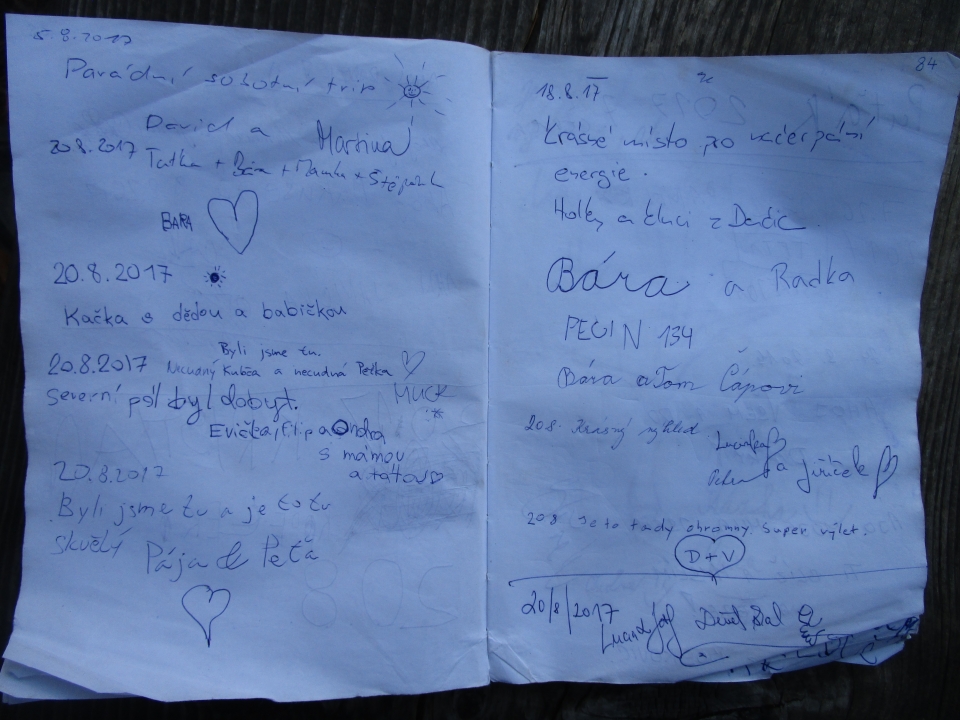 5.8.2017
Parádní sobotní trip
David a Martina
20.8.2017 Taťka + Bára + Mamka + Štěpánek
BARA
20.8.2017
Kačka s dědou a babičkou
Byli jsme tu.
20.8.2017 Kubča a necudná Peťka
Severní pól byl dobyt. MUCK
Evička, Filip a Ondra
s mámou
a tátou
20.8.2017
Byli jsme tu a je to tu
skvělý
Pája & Peťa
84
18.8.17
Krásné místo pro načerpání
energie.
Holky a kluci z Dačic
Bára a Radka
PECIN 134
Bára a Tom Čápovi
20.8. Krásný výhled
a Jiříček
20.8. Je to tady ohromný. Super výlet.
D+V
20/8/2017